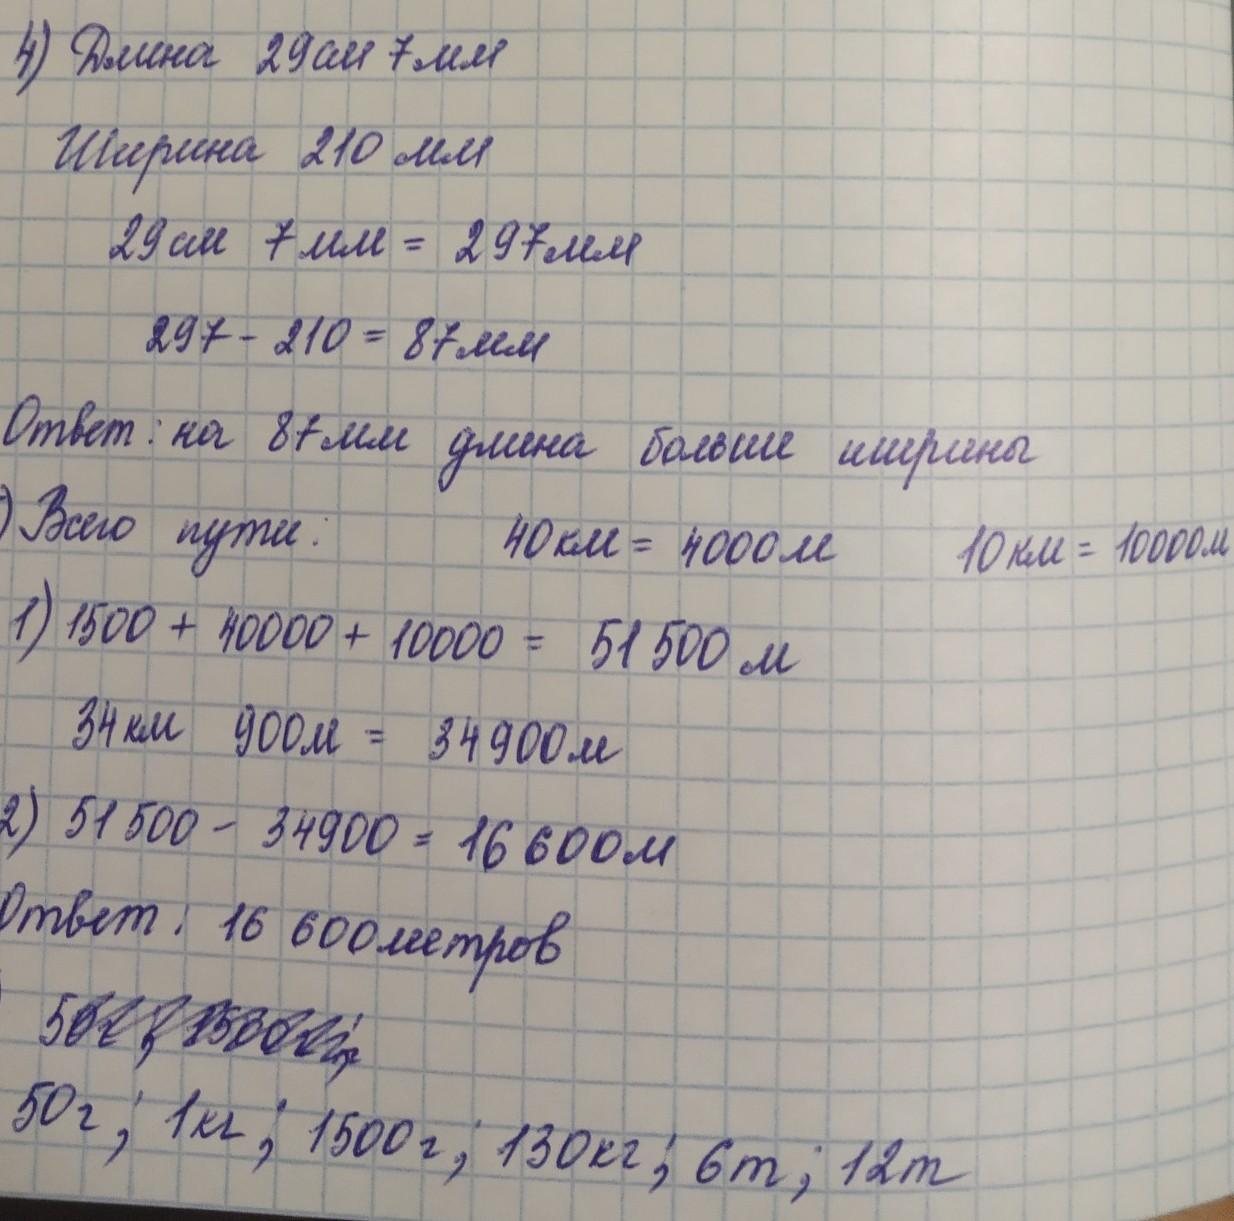 4) Длина 29см 7мм
Ширина 210 мм
29см 7мм = 297мм
297 - 210 = 87мм
Ответ: на 87мм длина больше ширины
) Всего пути: 40км = 4000м 10км = 10000м
1) 1500 + 40000 + 10000 = 51 500 м
34км 900м = 34900м
2) 51 500 - 34900 = 16 600м
Ответ: 16 600метров
50г; 1кг; 1500г; 130кг; 6т; 12т